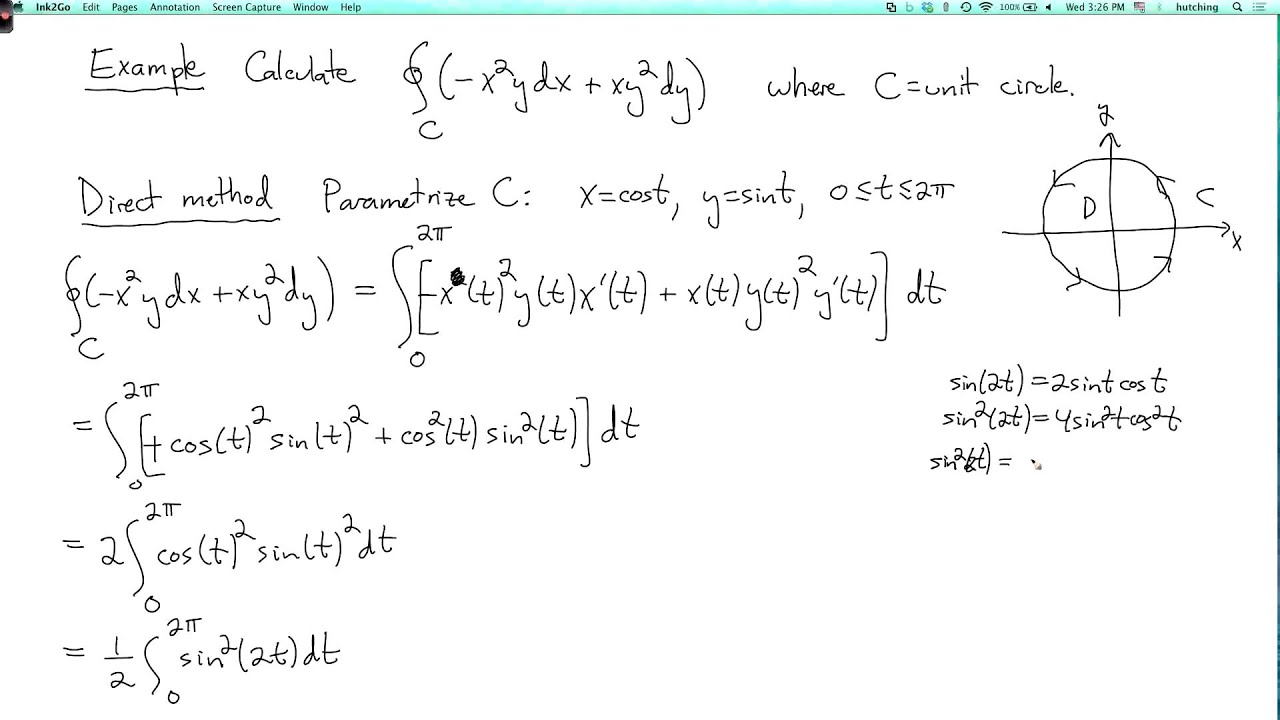 Ink2Go Edit Pages Annotation Screen Capture Window Help 100% Wed 3:26 PM hutching
Example Calculate ∮_C (-x²y dx + xy² dy) where C = unit circle.
y
D C
x
Direct method Parametrize C: x=cost, y=sint, 0≤t≤2π
∮_C (-x²y dx + xy² dy) = ∫_0^{2π} [-x(t)² y(t) x'(t) + x(t) y(t)² y'(t)] dt
= ∫_0^{2π} [+cos(t)² sin(t)² + cos²(t) sin²(t)] dt
= 2 ∫_0^{2π} cos(t)² sin(t)² dt
= 1/2 ∫_0^{2π} sin²(2t) dt
sin(2t) = 2sint cost
sin²(2t) = 4sin²t cos²t
sin²(t) =